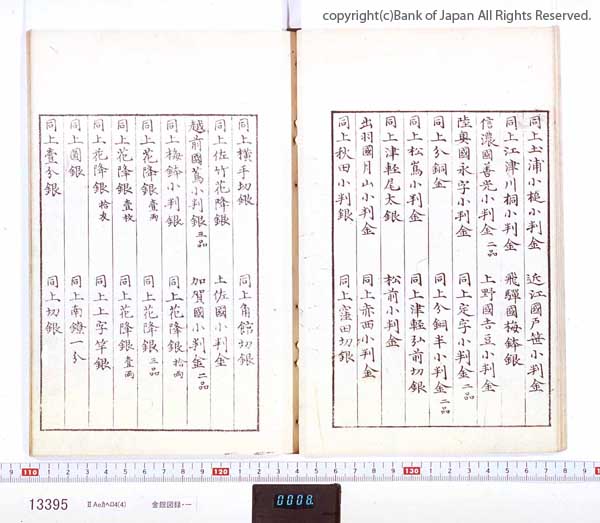 copyright(c)Bank of Japan All Rights Reserved.
同上土浦小槌小判金 近江國戸笹小判金
同上江津川桐小判金 飛騨國梅鉢銀
信濃國善光小判金二品 上野國吉豆小判金
陸奥國永字小判金 同上定字小判金二品
同上分銅金 同上分銅半小判金二品
同上松嶌小判金 同上津軽弘前切銀
同上津軽尾太銀 松前小判金
出羽國月山小判金 同上赤西小判金
同上秋田小判銀 同上窪田切銀
同上横手切銀 同上角館切銀
同上佐竹花降銀 土佐國小判金
越前國蔦小判銀三品 加賀國小判金二品
同上梅鉢小判銀 同上花降銀拾両
同上花降銀壹両 同上花降銀三品
同上花降銀壹枚 同上花降銀壹両
同上花降銀拾枚 同上上字竿銀
同上圓銀 同上南鐐一分
同上壹分銀 同上切銀
110 1 2 3 4 5 6 7 8 9 120 1 2 3 4 5 6 7 8 9 130 1 2 3 4 5 6 7 8 9
13395 ⅡAeカへ04(4) 金銀図録・一
0008